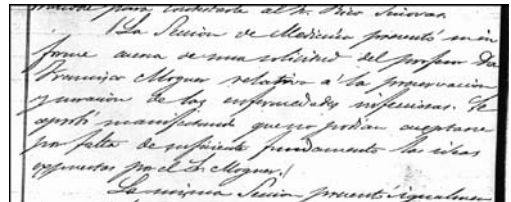 para contestarle al Sr. Rico Sinovas.
La Seccion de Medicina presentó un in
forme acerca de una solicitud del profesor Dn
Francisco Moguer relativa á la preservacion
y curacion de las enfermedades infecciosas. Se
aprobó manifestando que no podian aceptarse
por falta de suficiente fundamento las ideas
expuestas por el Sr. Moguer.
La misma Seccion presentó igualmen